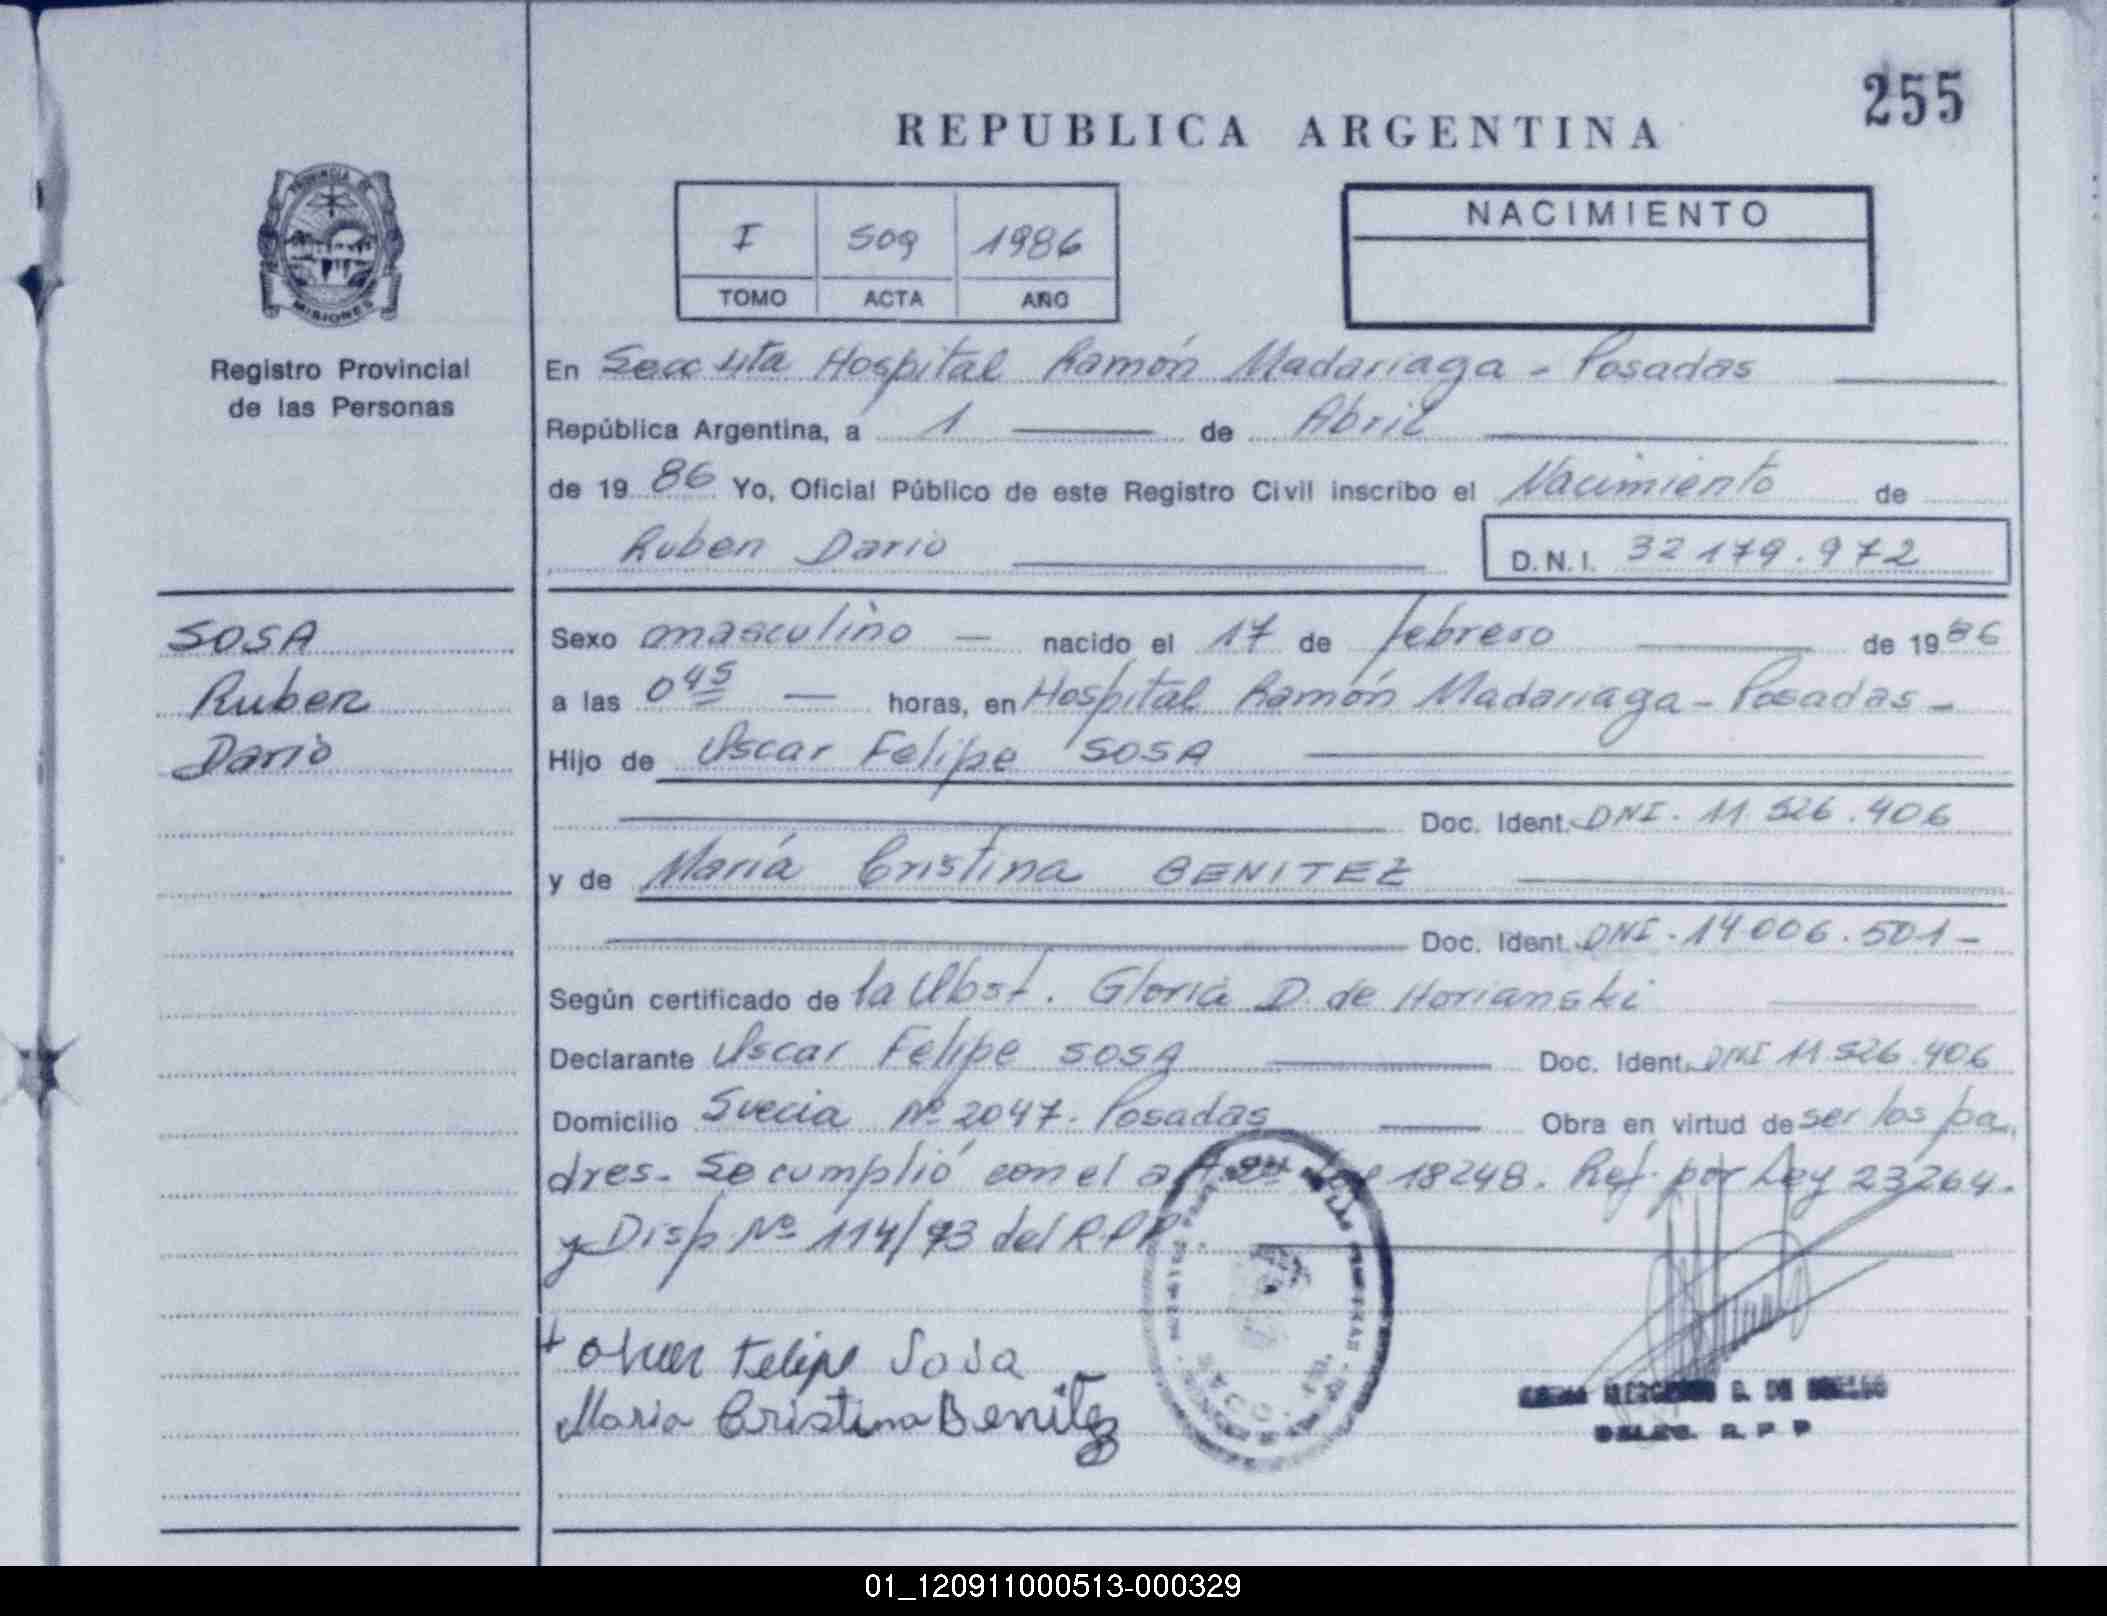 255
REPUBLICA ARGENTINA
PROVINCIA DE
MISIONES
Registro Provincial
de las Personas
I 509 1986
TOMO ACTA AÑO
NACIMIENTO
En Secc 4ta Hospital Ramón Madariaga - Posadas
República Argentina, a 1 de Abril
de 1986 Yo, Oficial Público de este Registro Civil inscribo el Nacimiento de
Ruben Dario D.N.I. 32 179.972
SOSA
Ruben
Dario
Sexo masculino — nacido el 17 de febrero de 1986
a las 0 45 — horas, en Hospital Ramón Madariaga - Posadas -
Hijo de Oscar Felipe SOSA
Doc. Ident. DNI. 11 526.406
y de María Cristina BENITEZ
Doc. Ident. DNI. 14 006.501 -
Según certificado de la Obst. Gloria D. de Horianski
Declarante Oscar Felipe SOSA Doc. Ident. DNI 11.526.406
Domicilio Suecia Nº 2047. Posadas Obra en virtud de ser los pa
dres. Se cumplió con el art 18248. Ref. por Ley 23264.
y Disp Nº 114/93 del R.P.P.
+ Felipe Sosa
Maria Cristina Benitez
DELEG. R. P P
01_120911000513-000329